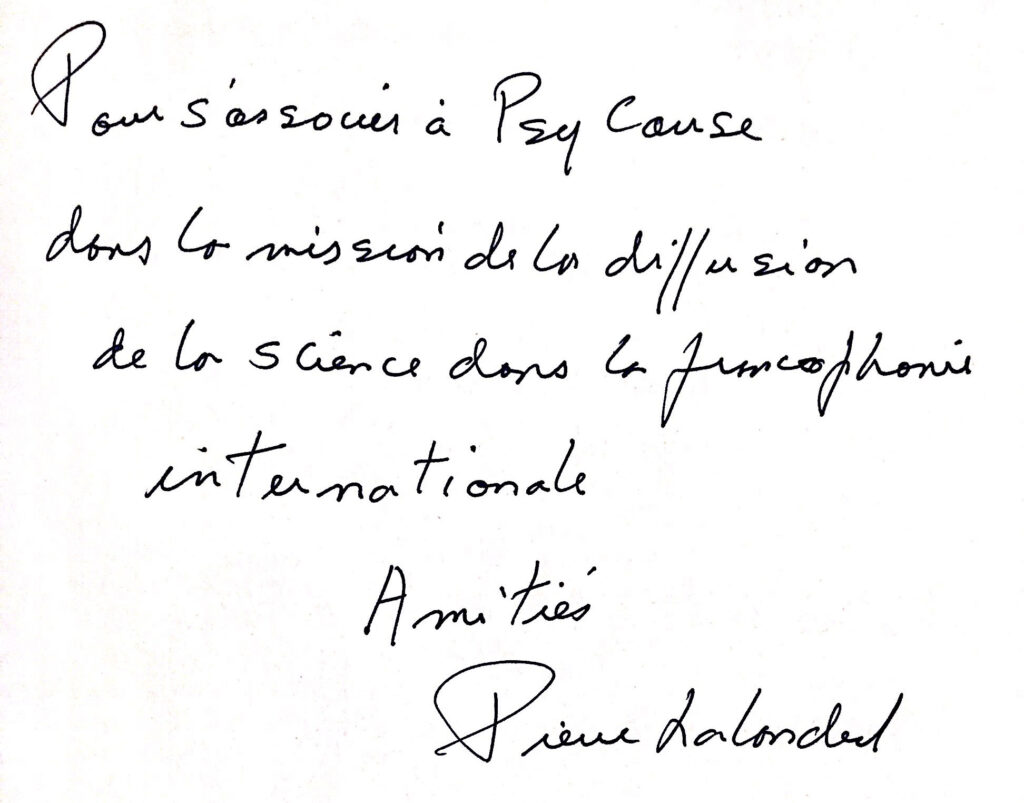 Pour s'associer à Psy Cause
dans la mission de la diffusion
de la science dans la francophonie
internationale
Amitiés
Pierre Lalonde